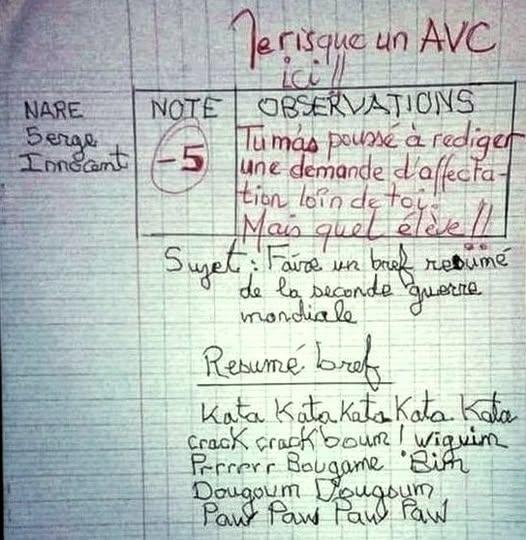 Je risque un AVC
ici !!
NARE
Serge
Innocent
NOTE
-5
OBSERVATIONS
Tu m'as poussé à rediger
une demande d'affecta-
tion loin de toi.
Mais quel élève !!
Sujet : Faire un bref resumé
de la seconde guerre
mondiale
Resumé bref
Kata Kata Kata Kata Kata
crack crack boum ! wiquim
Prrrrrr Bougame Bim
Dougoum Dougoum
Paw Paw Paw Paw